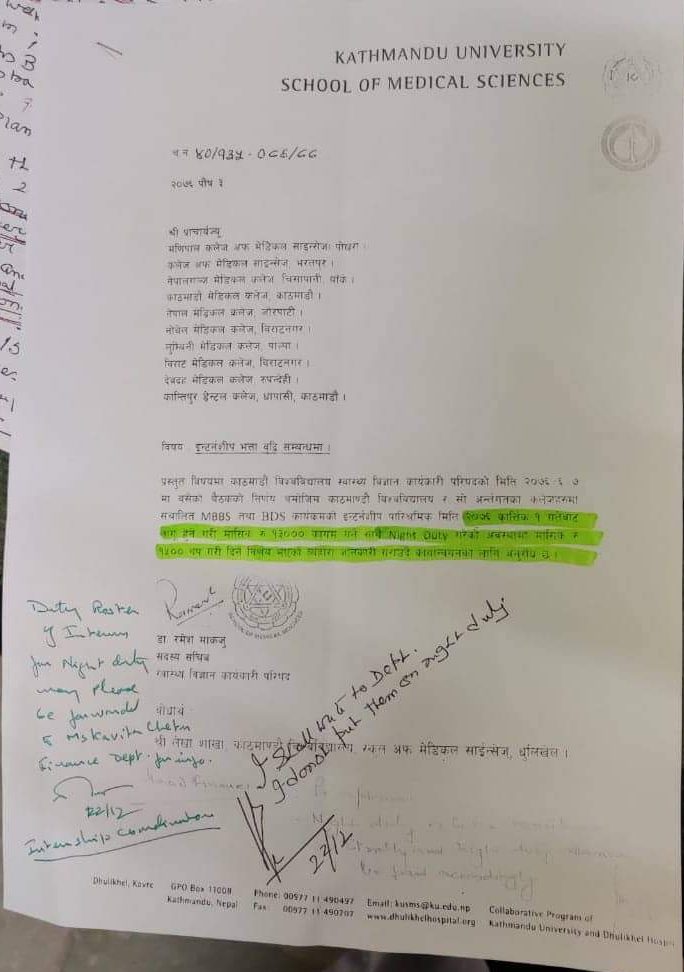 KATHMANDU UNIVERSITY
SCHOOL OF MEDICAL SCIENCES
च नं
२०७६ पौष १
श्री प्राचार्यज्यू
मणिपाल कलेज अफ मेडिकल साइन्सेज, पोखरा ।
कलेज अफ मेडिकल साइन्सेज, भरतपुर ।
नेपालगञ्ज मेडिकल कलेज, चिसापानी, बाँके ।
काठमाडौं मेडिकल कलेज, काठमाडौं ।
नेपाल मेडिकल कलेज, जोरपाटी ।
नोबेल मेडिकल कलेज, विराटनगर ।
लुम्बिनी मेडिकल कलेज, पाल्पा ।
विराट मेडिकल कलेज, विराटनगर ।
देवदह मेडिकल कलेज, रुपन्देही ।
कान्तिपुर डेन्टल कलेज, धापासी, काठमाडौं ।
विषय: इन्टर्नशीप भत्ता वृद्धि सम्बन्धमा ।
प्रस्तुत विषयमा काठमाडौं विश्वविद्यालय स्वास्थ्य विज्ञान कार्यकारी परिषदको मिति २०७६ ६ ७
मा बसेको बैठकको निर्णय बमोजिम काठमाण्डौ विश्वविद्यालय र सो अन्तर्गतका कलेजहरुमा
संचालित MBBS तथा BDS कार्यक्रमको इन्टर्नशीप पारिश्रमिक मिति २०७६ कार्तिक १ गतेबाट
लागू हुने गरी मासिक रु १३००० कायम गर्ने साथै Night Duty गरेको अवस्थामा मासिक रु
१५०० थप गरी दिने निर्णय भएको व्यहोरा जानकारी गराउदै कार्यान्वयनका लागि अनुरोध छ ।
SCHOOL OF MEDICAL SCIENCES
डा रमेश माकजु
सदस्य सचिव
स्वास्थ्य विज्ञान कार्यकारी परिषद
Duty Roster
of Interns
for Night duty
may please
be forwarded
to Ms Kavita
Finance Dept. for info.
22/12
Internship Coordinator
बोधार्थ
श्री लेखा शाखा, काठमाण्डौ विश्वविद्यालय, स्कूल अफ मेडिकल साइन्सेज, धुलिखेल ।
I shall write to Dept.
I donot put them on night duty
22/12
Dhulikhel, Kavre
GPO Box 11008
Kathmandu, Nepal
Phone: 00977 11 490497
Fax: 00977 11 490707
Email: kusms@ku.edu.np
www.dhulikhelhospital.org
Collaborative Program of
Kathmandu University and Dhulikhel Hospi